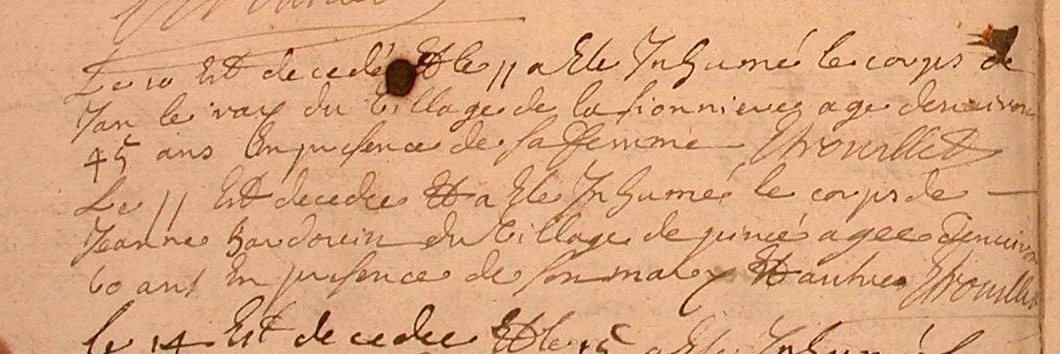 Le 10 Est decedé Et le 11 a Este Inhumé le corps de
Jan le ray du Village de la sionniere age denviron
45 ans En presence de sa femme Drouillet
Le 11 Est decedee Et a Este Inhumée le corps de
Jeanne baudouin du Village de juncé agee denviron
60 ans En presence de son mary Et autres Drouillet
le 14 Est decedee Et le 15 a Este Inhumé le